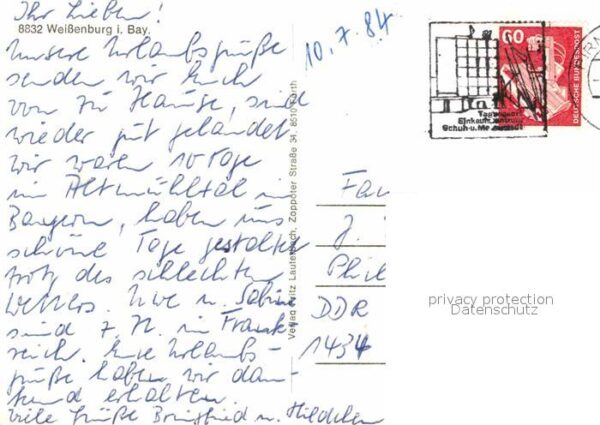 Ihr Lieben!
8832 Weißenburg i. Bay.
Unsere Urlaubsgrüße
senden wir Euch
von zu Hause, sind
wieder gut gelandet.
Wir waren 10 Tage
im Altmühltal in
Bayern, haben uns
schöne Tage gestaltet
trotz des schlechten
Wetters. Uwe u. Sabine
sind z. Zt. in Frank-
reich. Eure Urlaubs-
grüße haben wir dan-
kend erhalten.
Viele Grüße
10.7.84
60
DEUTSCHE BUNDESPOST
Einkaufszentrum
Schuh- u.
Verlag Fritz Lauterbach, Zoppoter Straße 34, 8510 Fürth
Fam
J.
Phil
DDR
1434
privacy protection
Datenschutz